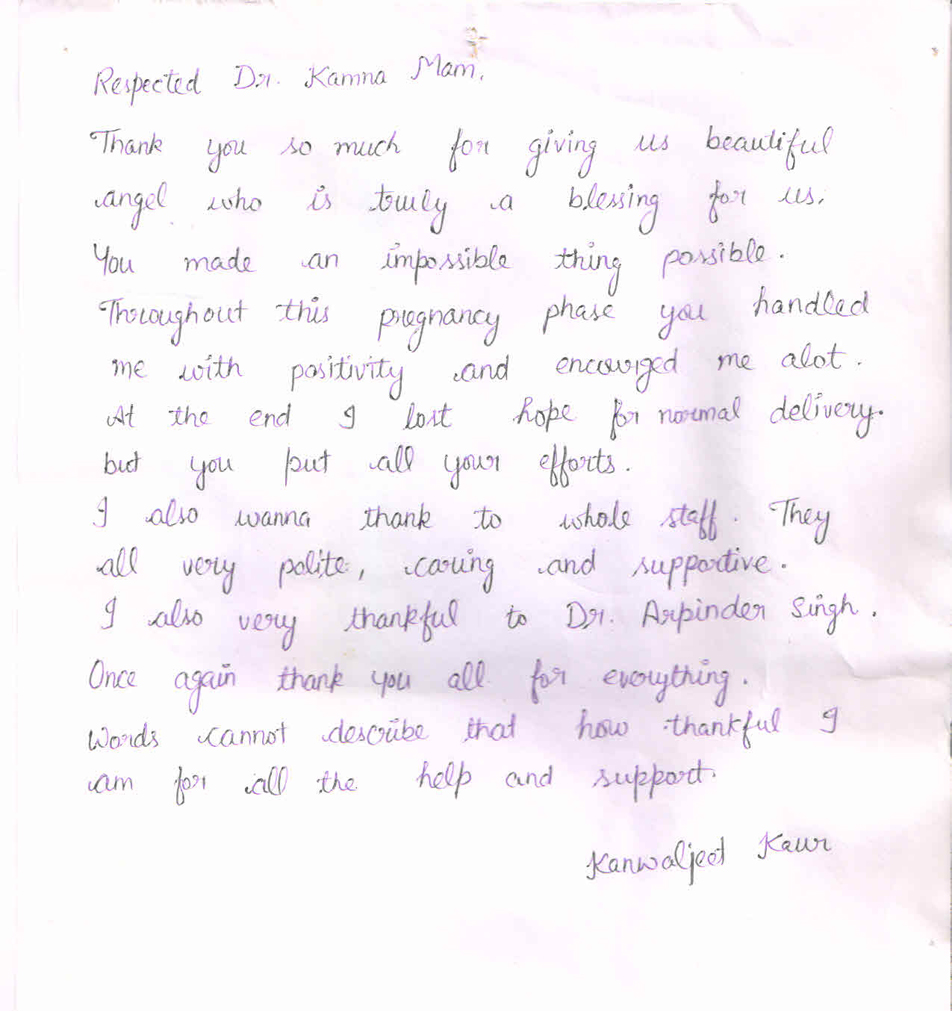 Respected Dr. Kamna Mam,
Thank you so much for giving us beautiful
angel who is truly a blessing for us.
You made an impossible thing possible.
Throughout this pregnancy phase you handled
me with positivity and encourged me alot.
At the end I lost hope for normal delivery.
but you put all your efforts.
I also wanna thank to whole staff. They
all very polite, caring and supportive.
I also very thankful to Dr. Arpinder Singh.
Once again thank you all for everything.
Words cannot describe that how thankful I
am for all the help and support.
Kanwaljeet Kaur